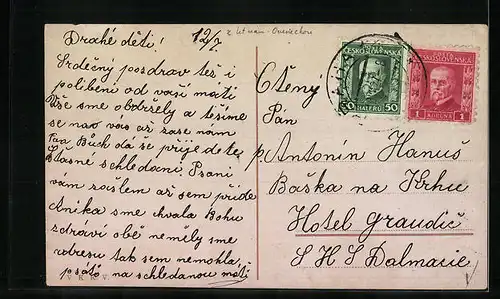 Drahé děti! 12/7
Srdečný pozdrav též i
políbení od vaší máti
Vše sme obdržely a těšíme
se nao vás až zase nám
Pan Bůch dá se přijedete
šťasné schledaní, Psaní
vám zašlem až sem přide
Anika sme chvala Bohu
zdráví obě neměly sme
adresu tak sem nemohla
psáti na schledanou máti
V. K. K. V.
POŠTA
ČESKOSLOVENSKÁ
50 HALÉŘŮ 50
ČESKOSLOVENSKÁ
1 KORUNA 1
Ctěný
Pán
p. Antonín Hanuš
Baška na Krku
Hotel Graudič
S H S Dalmacie